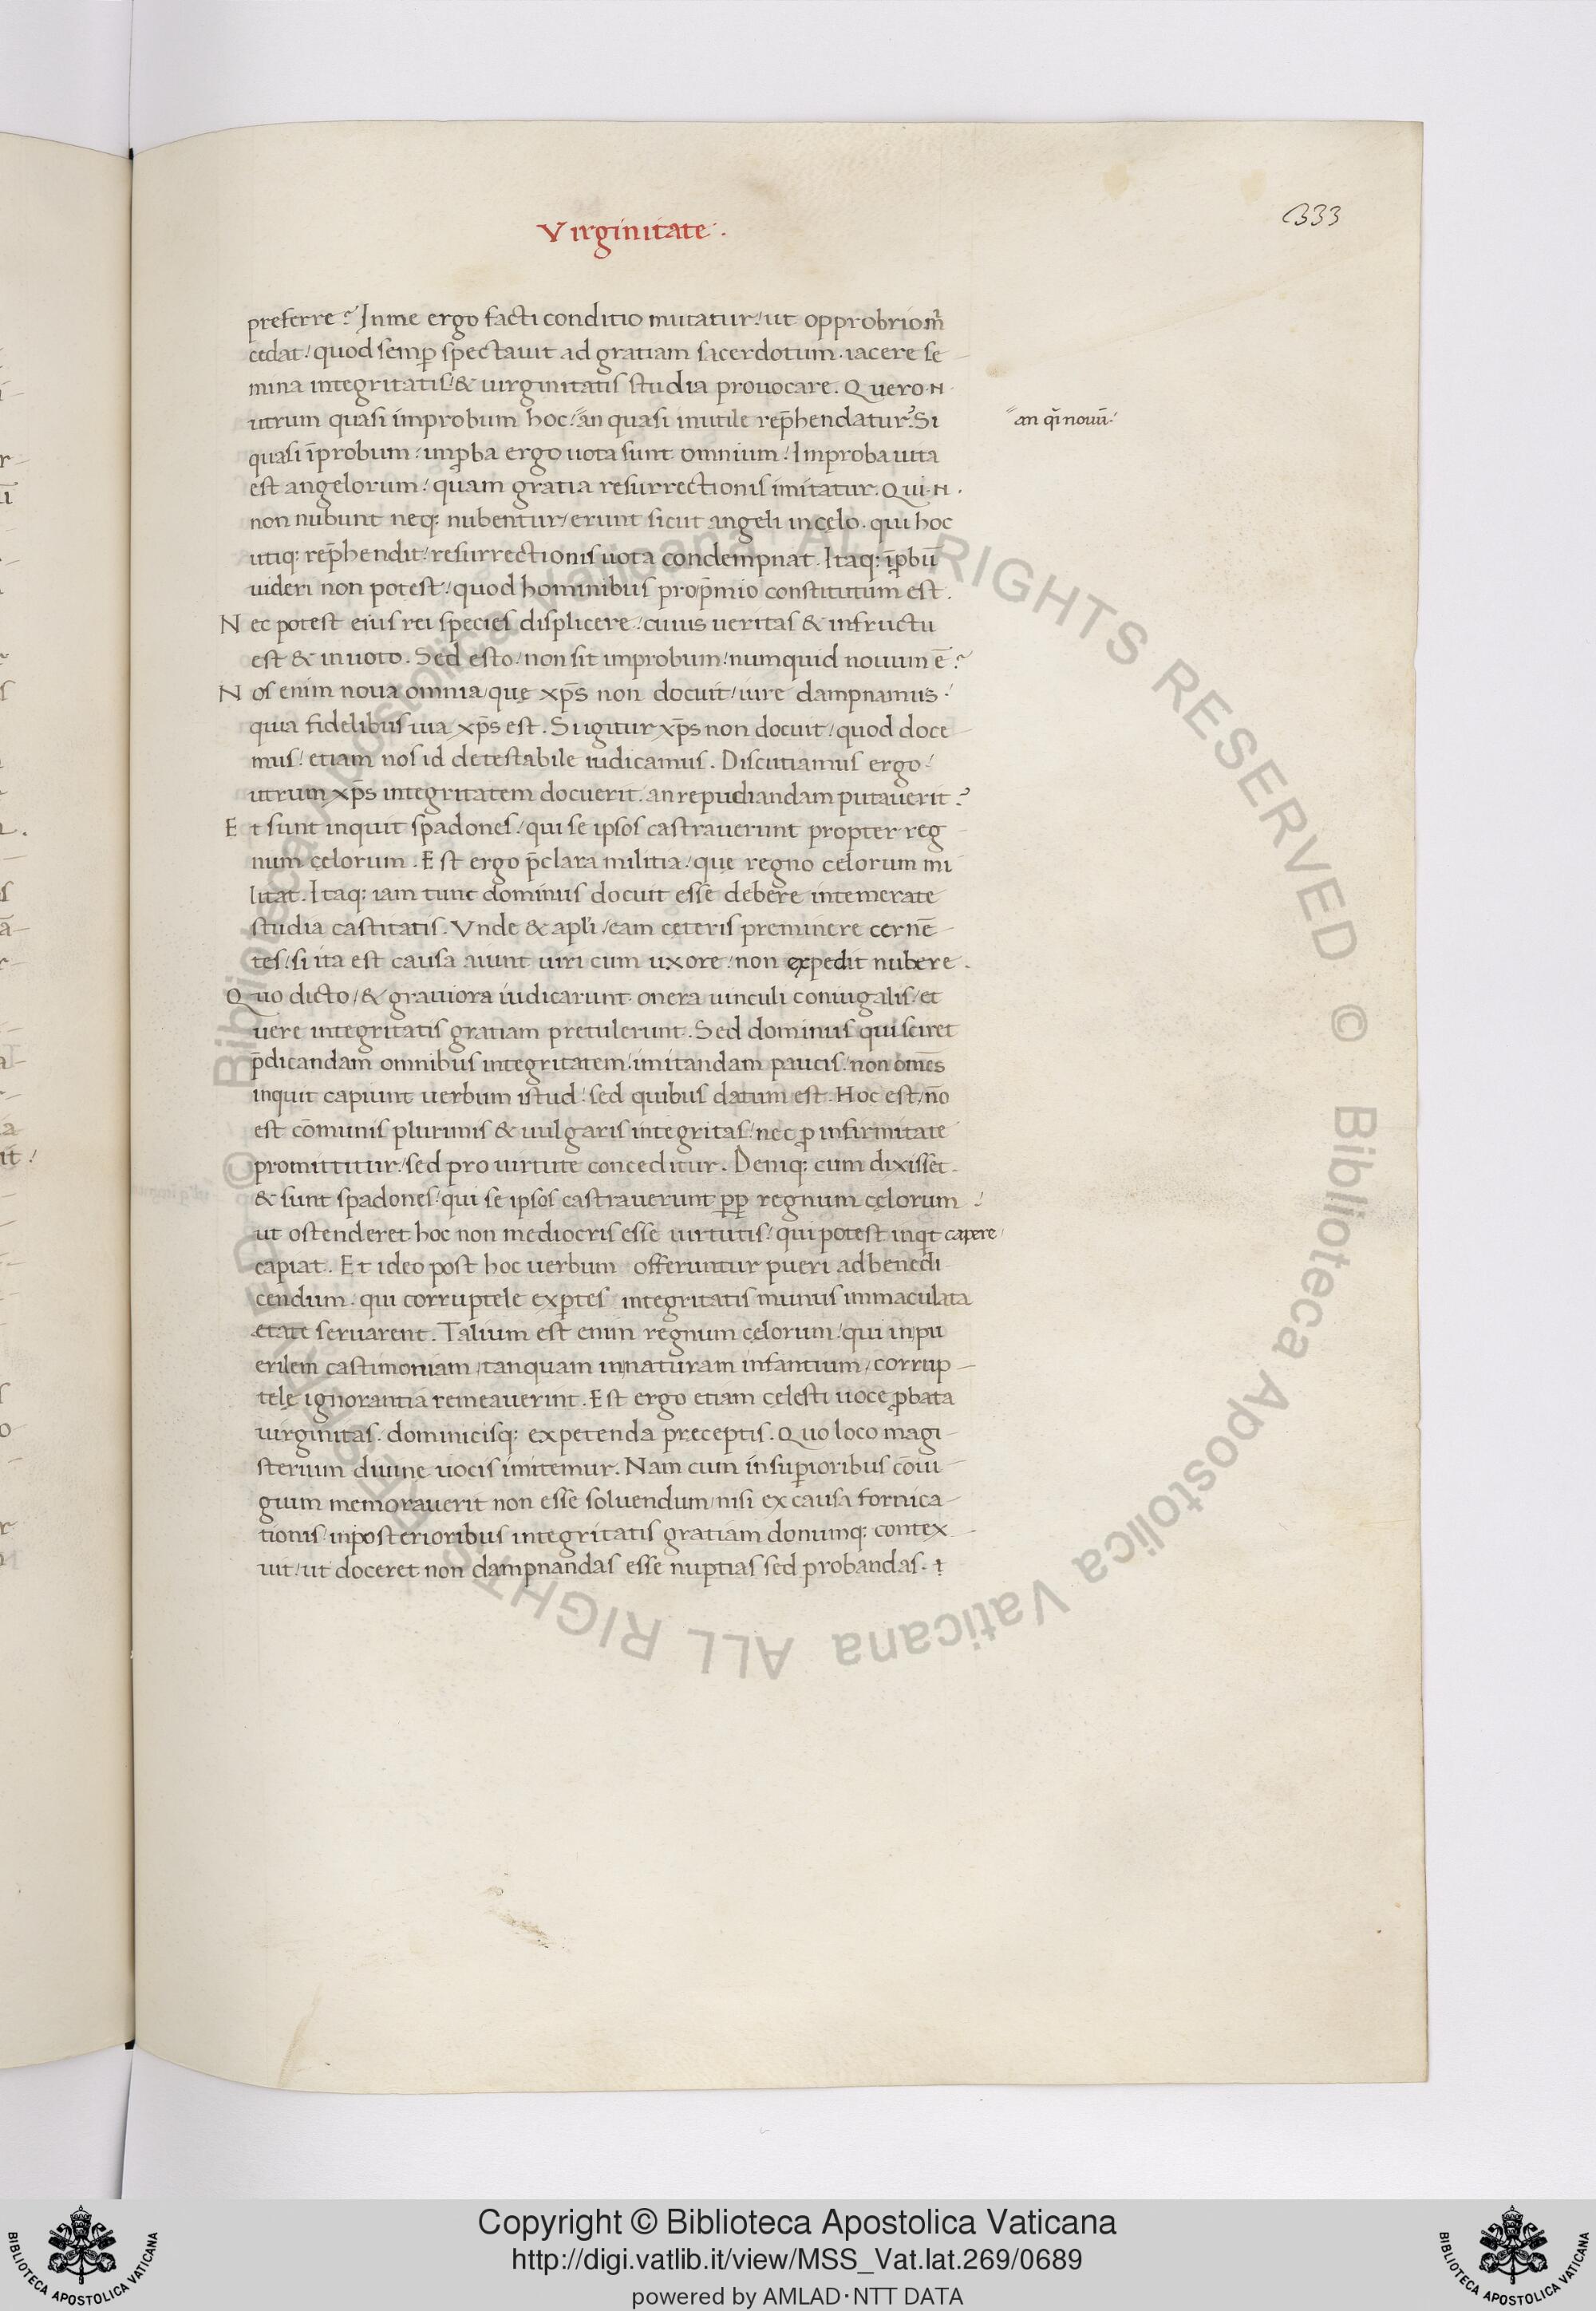 333
Virginitate .
preferre? In me ergo facti conditio mutatur / ut opprobrio m̄
cedat / quod semꝑ spectauit ad gratiam sacerdotum . iacere se
mina integritatis / & uirginitatis studia prouocare . Quero N .
utrum quasi improbum hoc / an quasi inutile rep̄hendatur? Si
an qͣi nouū /
quasi īprobum / unꝓba ergo uota sunt omnium / Improba uita
est angelorum / quam gratia resurrectionis imitatur . Qui N .
non nubunt neq: nubentur / erunt sicut angeli in cęlo . qui hoc
utiq: rep̄hendit / resurrectionis uota condempnat . Itaq: īꝓbū
uideri non potest / quod hominibus pro p̄mio constitutum est .
Nec potest eius rei species displicere / cuius ueritas & in fructu
est & in uoto . Sed esto / non sit improbum / numquid nouum ē?
Nos enim noua omnia / quę xp̄s non docuit / iure dampnamus /
quia fidelibus uia xp̄s est . Si igitur xp̄s non docuit / quod doce
mus / etiam nos id detestabile iudicamus . Discutiamus ergo /
utrum xp̄s integritatem docuerit . an repudiandam putauerit?
Et sunt inquit spadones / qui se ipsos castrauerunt propter reg
num cęlorum . Est ergo p̄clara militia / quę regno celorum mi
litat . Itaq: iam tunc dominus docuit esse debere intemerate
studia castitatis . Vnde & apl̄i / eam ceteris preminere cernē
tes / si ita est causa aiunt uiri cum uxore / non expedit nubere .
Quo dicto / & grauiora iudicarunt onera uinculi coniugalis / et
uere integritatis gratiam pretulerunt . Sed dominus qui sciret
p̄dicandam omnibus integritatem / imitandam paucis / non om̄s
inquit capiunt uerbum istud / sed quibus datum est . Hoc est / nō
est cōmunis plurimis & uulgaris integritas / nec ꝓ infirmitate
promittitur / sed pro uirtute conceditur . Deniq: cum dixisset .
& sunt spadones / qui se ipsos castrauerunt ꝓꝑ regnum cęlorum /
ut ostenderet hoc non mediocris esse uirtutis / qui potest inqͥt capere /
capiat . Et ideo post hoc uerbum offeruntur pueri ad benedi
cendum . qui corruptele exꝑtes integritatis munus immaculata
etate seruarent . Talium est enim regnum cęlorum / qui in pu
erilem castimoniam / tanquam in naturam infantium / corrup
telę ignorantia remeauerint . Est ergo etiam cęlesti uoce ꝓbata
uirginitas . dominicisq: expetenda preceptis . Quo loco magi
sterium diuinę uocis imitemur . Nam cum in suꝑioribus cōiu
gium memorauerit non esse soluendum / nisi ex causa fornica
tionis / in posterioribus integritatis gratiam donumq: contex
uit / ut doceret non dampnandas esse nuptias sed probandas . &
© Biblioteca Apostolica Vaticana ALL RIGHTS RESERVED © Biblioteca Apostolica Vaticana ALL RIGHTS RESERVED
Copyright © Biblioteca Apostolica Vaticana
http://digi.vatlib.it/view/MSS_Vat.lat.269/0689
powered by AMLAD·NTT DATA
BIBLIOTECA APOSTOLICA VATICANA
BIBLIOTECA APOSTOLICA VATICANA